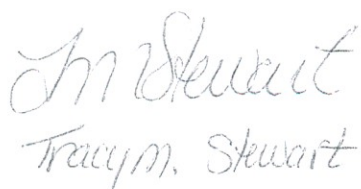 TM Stewart
Tracy M. Stewart